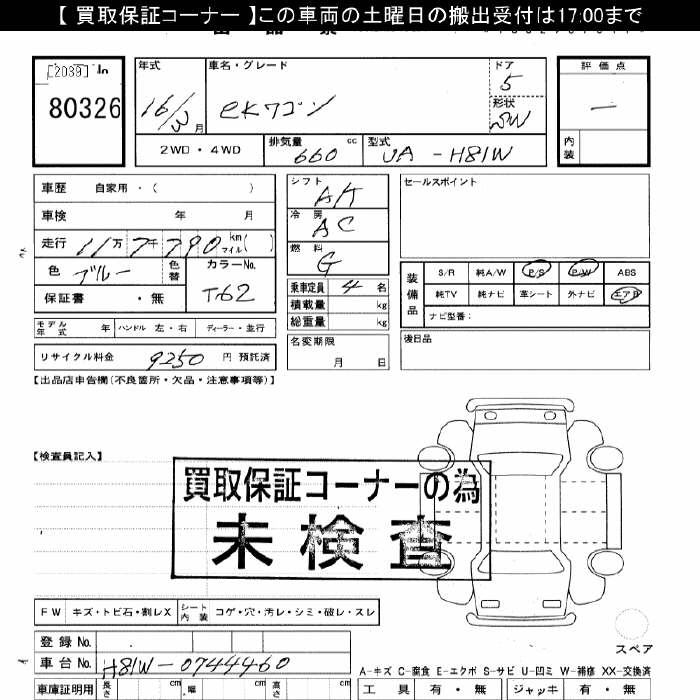 【 買取保証コーナー 】この車両の土曜日の搬出受付は17:00まで
[2039]
80326
年式
車名・グレード
ドア
評価点
16/3月
eKワゴン
5
形状
SW
2WD・4WD
排気量
660 cc
型式
UA-H81W
内装
車歴 自家用・( )
車検 年 月
走行 11万7千790 km マイル( )
色 ブルー 色替 カラーNo. T62
保証書 ・無
モデル年式 年 ハンドル 左・右 ディーラー・並行
リサイクル料金 9250 円 預託済
シフト
冷房 AC
燃料 G
乗車定員 4 名
積載量 kg
総重量 kg
名変期限
月 日
セールスポイント
装備品
S/R 純A/W P/S P/W ABS
純TV 純ナビ 革シート 外ナビ エアB
ナビ型番:
後日品
【出品店申告欄(不良箇所・欠品・注意事項等)】
【検査員記入】
買取保証コーナーの為
未検査
FW キズ・トビ石・割レX シート内装 コゲ・穴・汚レ・シミ・破レ・スレ
スペア
登録 No.
車台 No. H81W-0744460
車庫証明用 長さ cm 幅 cm cm
A-キズ C-腐食 E-エクボ S-サビ U-凹ミ W-補修 XX-交換済
工具 有・無 ジャッキ 有・無